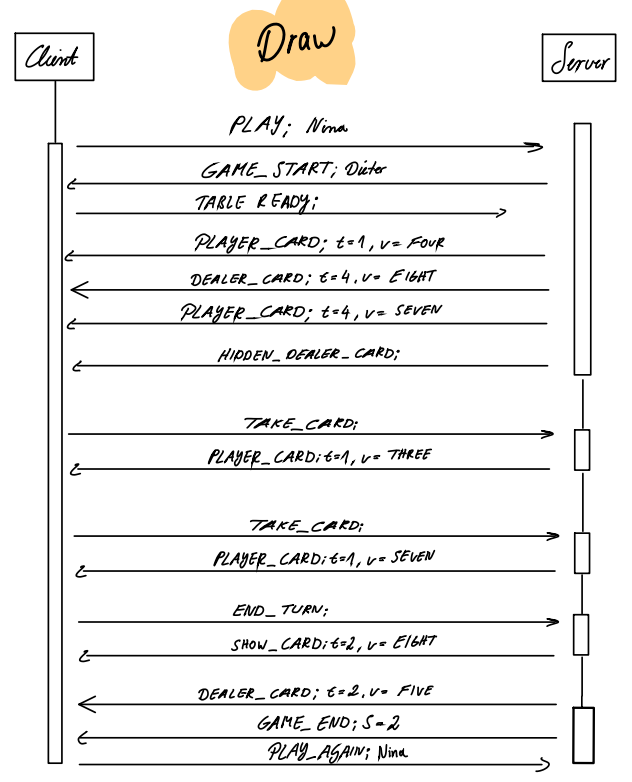 Draw
Client
Server
PLAY; Nina
GAME_START; Dieter
TABLE READY;
PLAYER_CARD; t=1, v= FOUR
DEALER_CARD; t=4, v= EIGHT
PLAYER_CARD; t=4, v= SEVEN
HIDDEN_DEALER_CARD;
TAKE_CARD;
PLAYER_CARD; t=1, v= THREE
TAKE_CARD;
PLAYER_CARD; t=1, v= SEVEN
END_TURN;
SHOW_CARD; t=2, v= EIGHT
DEALER_CARD; t=2, v= FIVE
GAME_END; S=2
PLAY_AGAIN; Nina